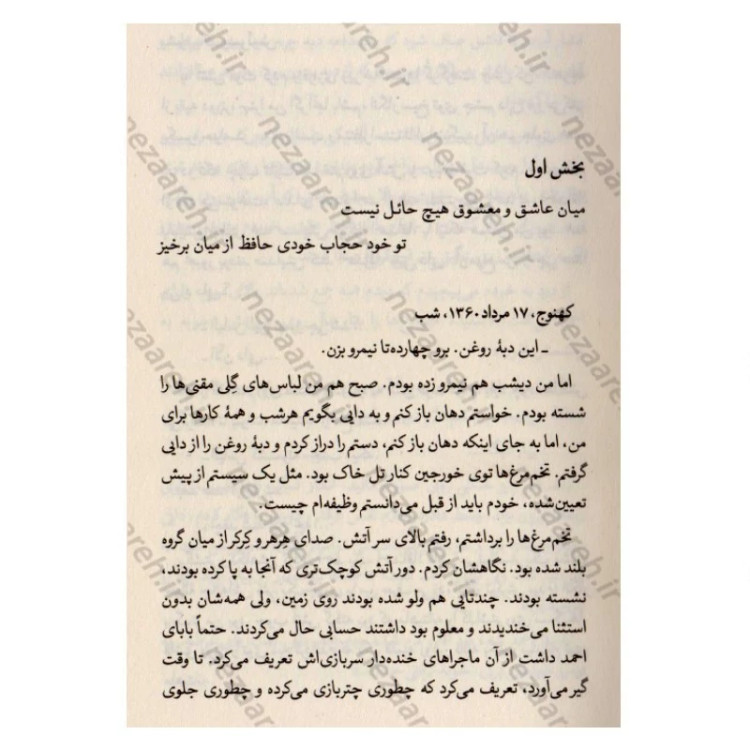 بخش اول
میان عاشق و معشوق هیچ حائل نیست
تو خود حجاب خودی حافظ از میان برخیز
کهنوج، ۱۷ مرداد ۱۳۶۰، شب
ـ این دبهٔ روغن. برو چهارده‌تا نیمرو بزن.
اما من دیشب هم نیمرو زده بودم. صبح هم من لباس‌های گِلی مقنی‌ها را
شسته بودم. خواستم دهان باز کنم و به دایی بگویم هرشب و همهٔ کارها برای
من، اما به جای اینکه دهان باز کنم، دستم را دراز کردم و دبهٔ روغن را از دایی
گرفتم. تخم‌مرغ‌ها توی خورجین کنار تل خاک بود. مثل یک سیستم از پیش
تعیین‌شده، خودم باید از قبل می‌دانستم وظیفه‌ام چیست.
تخم‌مرغ‌ها را برداشتم، رفتم بالای سر آتش. صدای هِرهر و کِرکر از میان گروه
بلند شده بود. نگاهشان کردم. دور آتش کوچک‌تری که آنجا به پا کرده بودند،
نشسته بودند. چندتایی هم ولو شده بودند روی زمین، ولی همه‌شان بدون
استثنا می‌خندیدند و معلوم بود داشتند حسابی حال می‌کردند. حتماً بابای
احمد داشت از آن ماجراهای خنده‌دار سربازی‌اش تعریف می‌کرد. تا وقت
گیر می‌آورد، تعریف می‌کرد که چطوری چتربازی می‌کرده و چطوری جلوی
nezaareh.ir